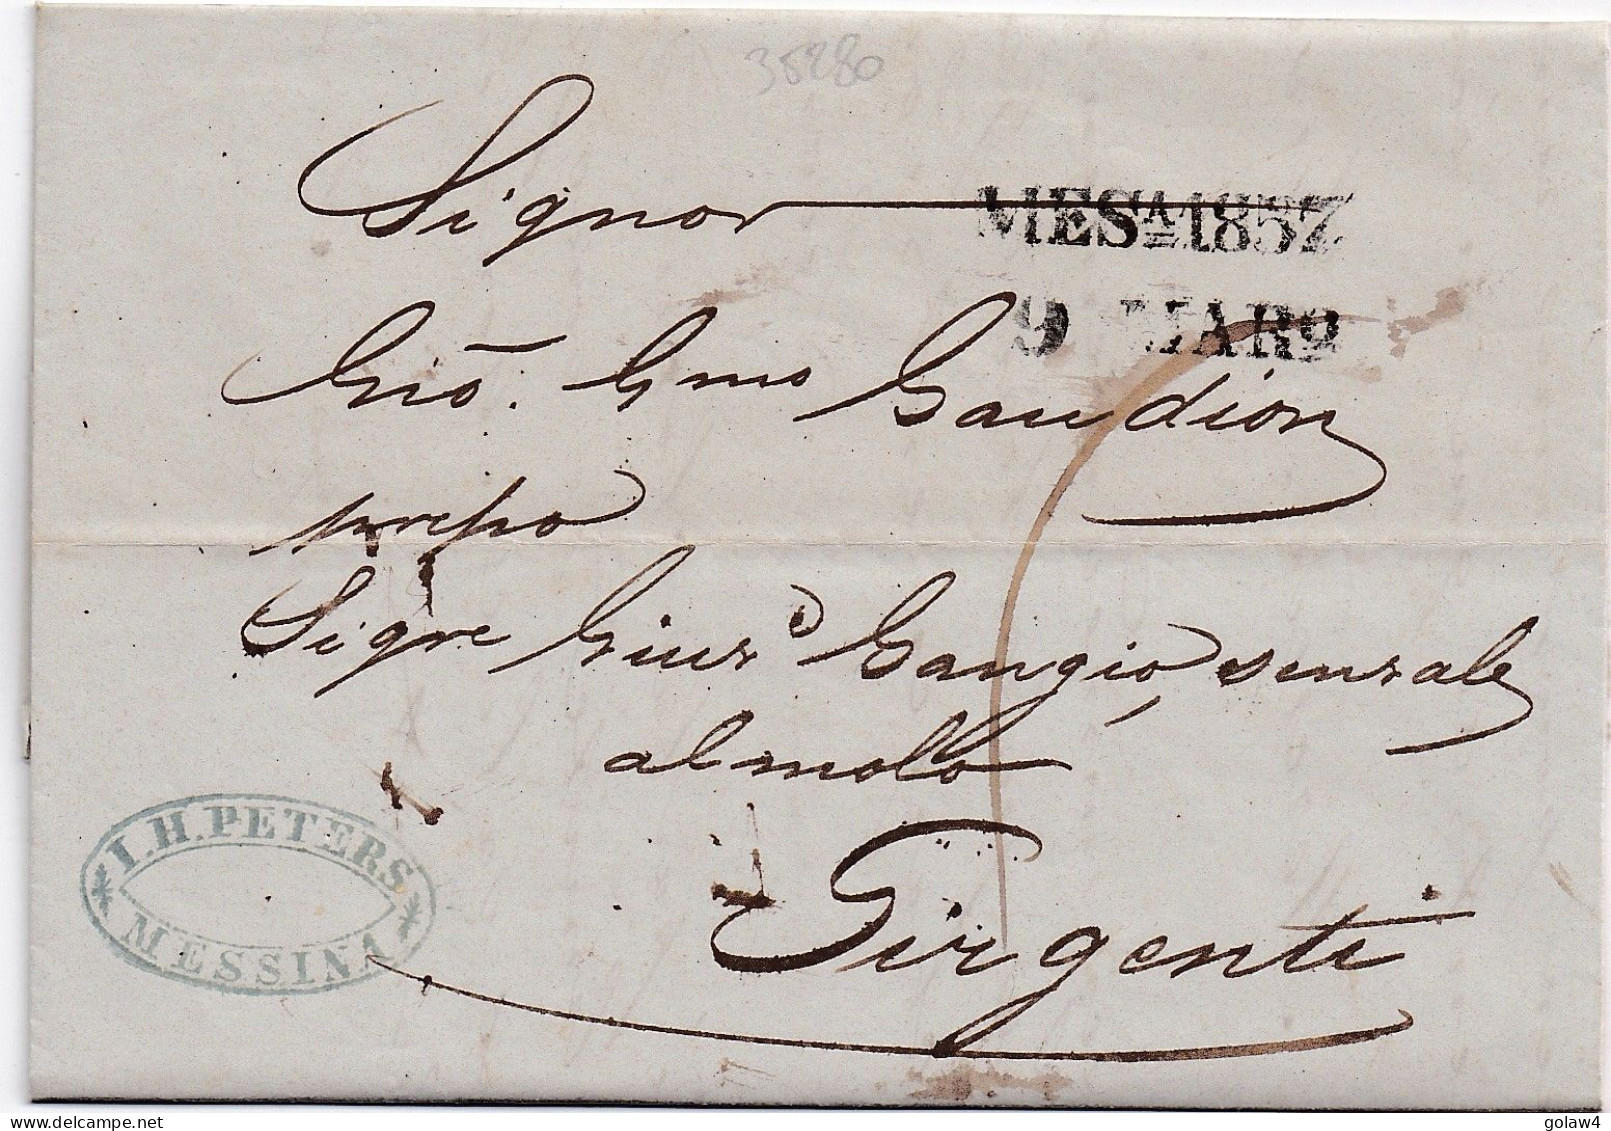 35280
Signor
MESA 1857
9 MARO
Gio. Gmo Gaudion
presso
Sigre Gius. Gangiò, sensale
al molo
Girgenti
I. H. PETERS
MESSINA
delcampe.net
golaw4